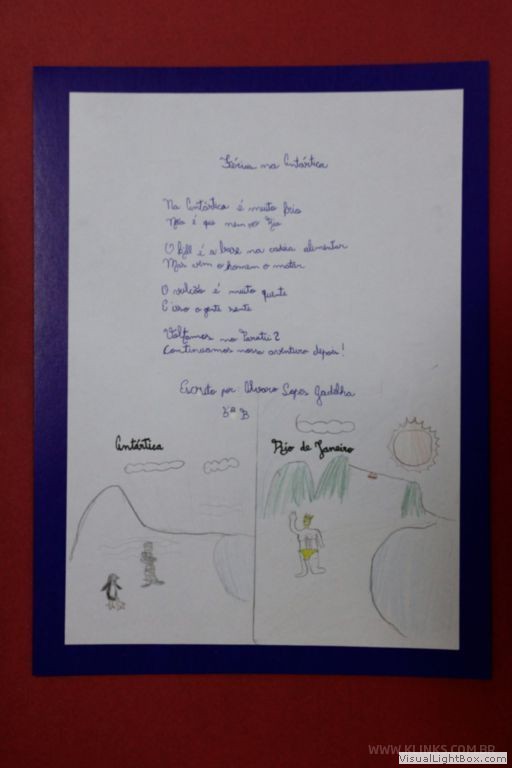 Férias na Antártica
Na Antártica é muito frio
Não é que nem no Rio
O krill é a base na cadeia alimentar
Mas vem o homem o matar
O vulcão é muito quente
E isso a gente sente
Voltamos no Paratii 2
Continuamos nossa aventura depois!
Escrito por: Alvaro Lopes Gadelha
5ª B
Antártica
Rio de Janeiro
WWW.KLINKS.COM.BR
VisualLightBox.com